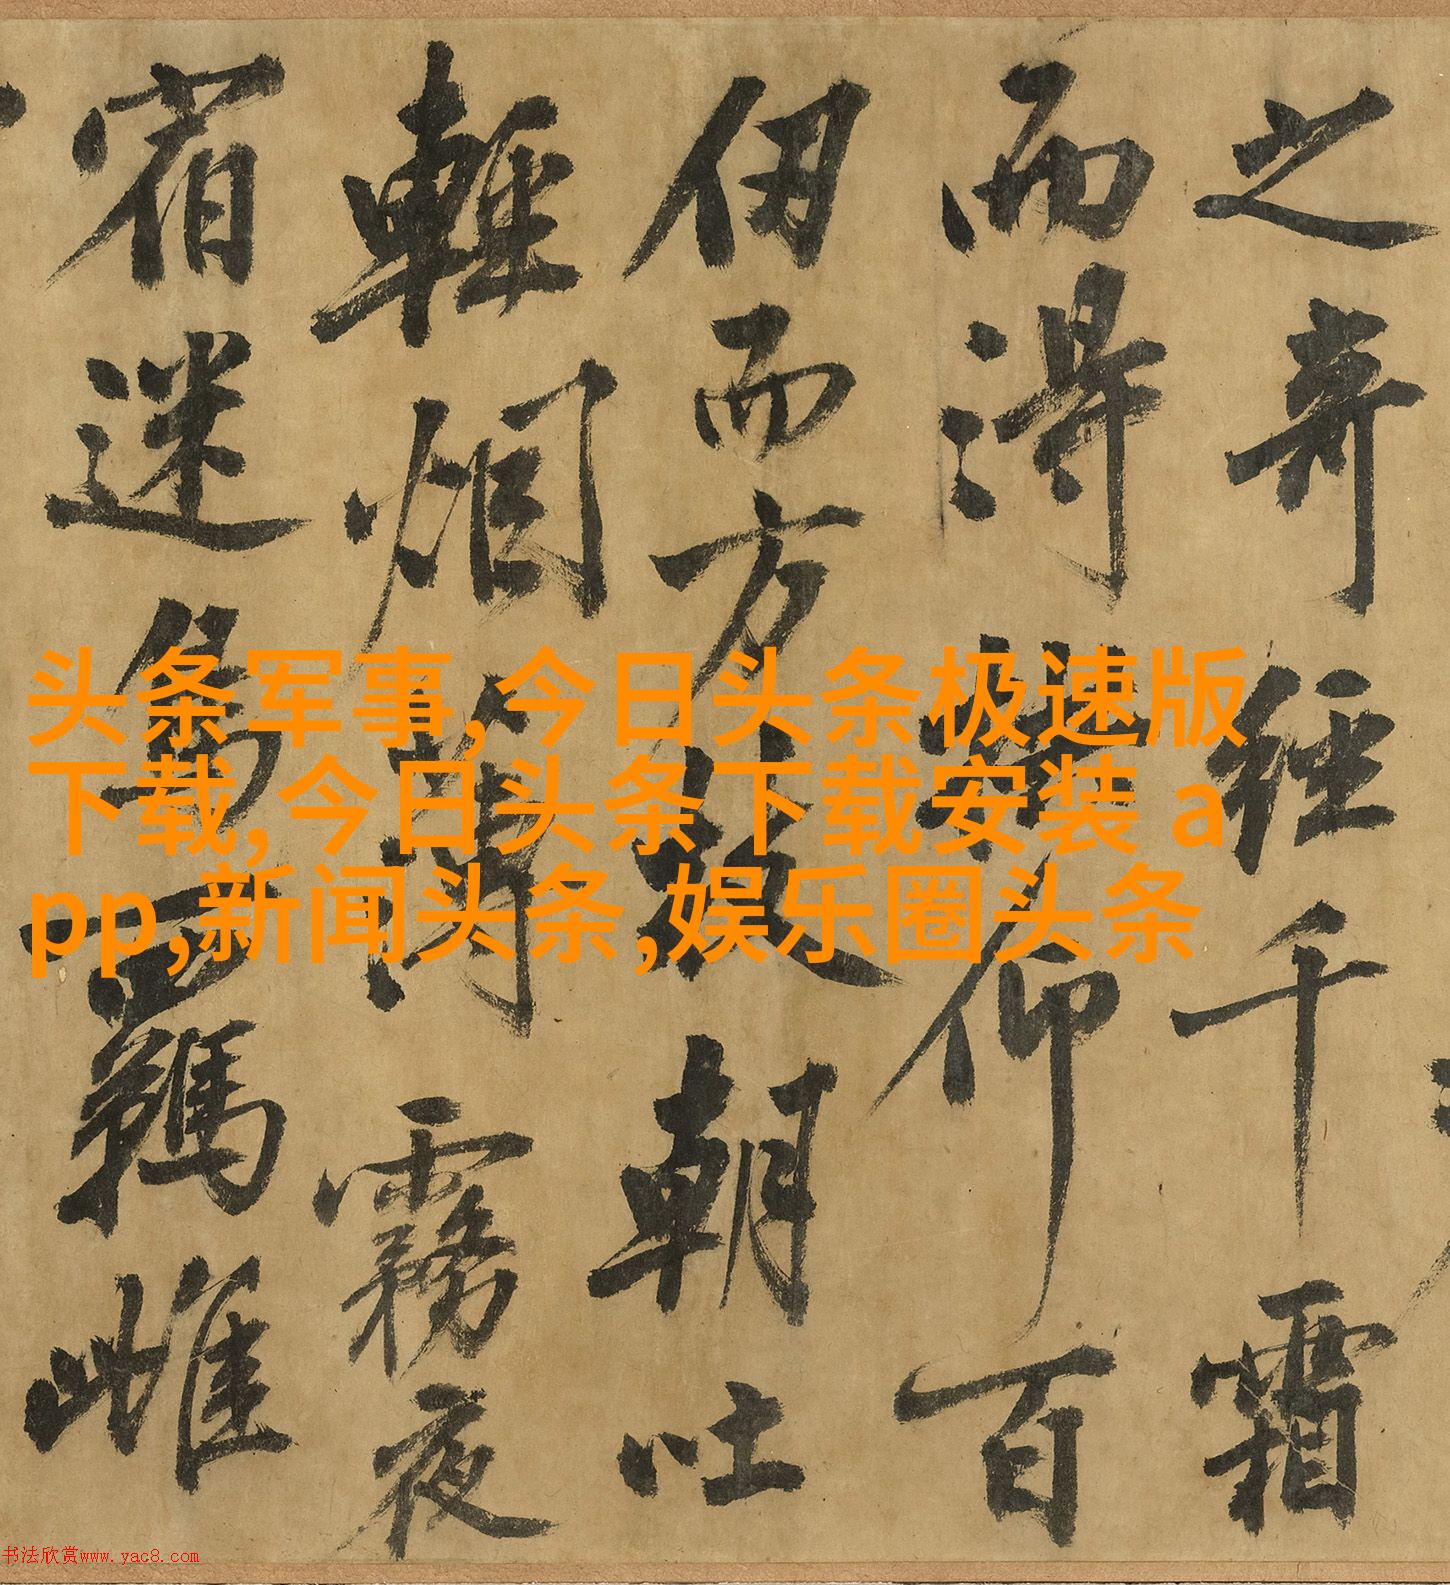 之奇經千霜
而得拱仰百
仞而方枝朝吐
輕烟薄霧夜
宿迷鳥羈雌
头条军事,今日头条极速版
下载,今日头条下载安装 a
pp,新闻头条,娱乐圈头条
书法欣赏www.yac8.com